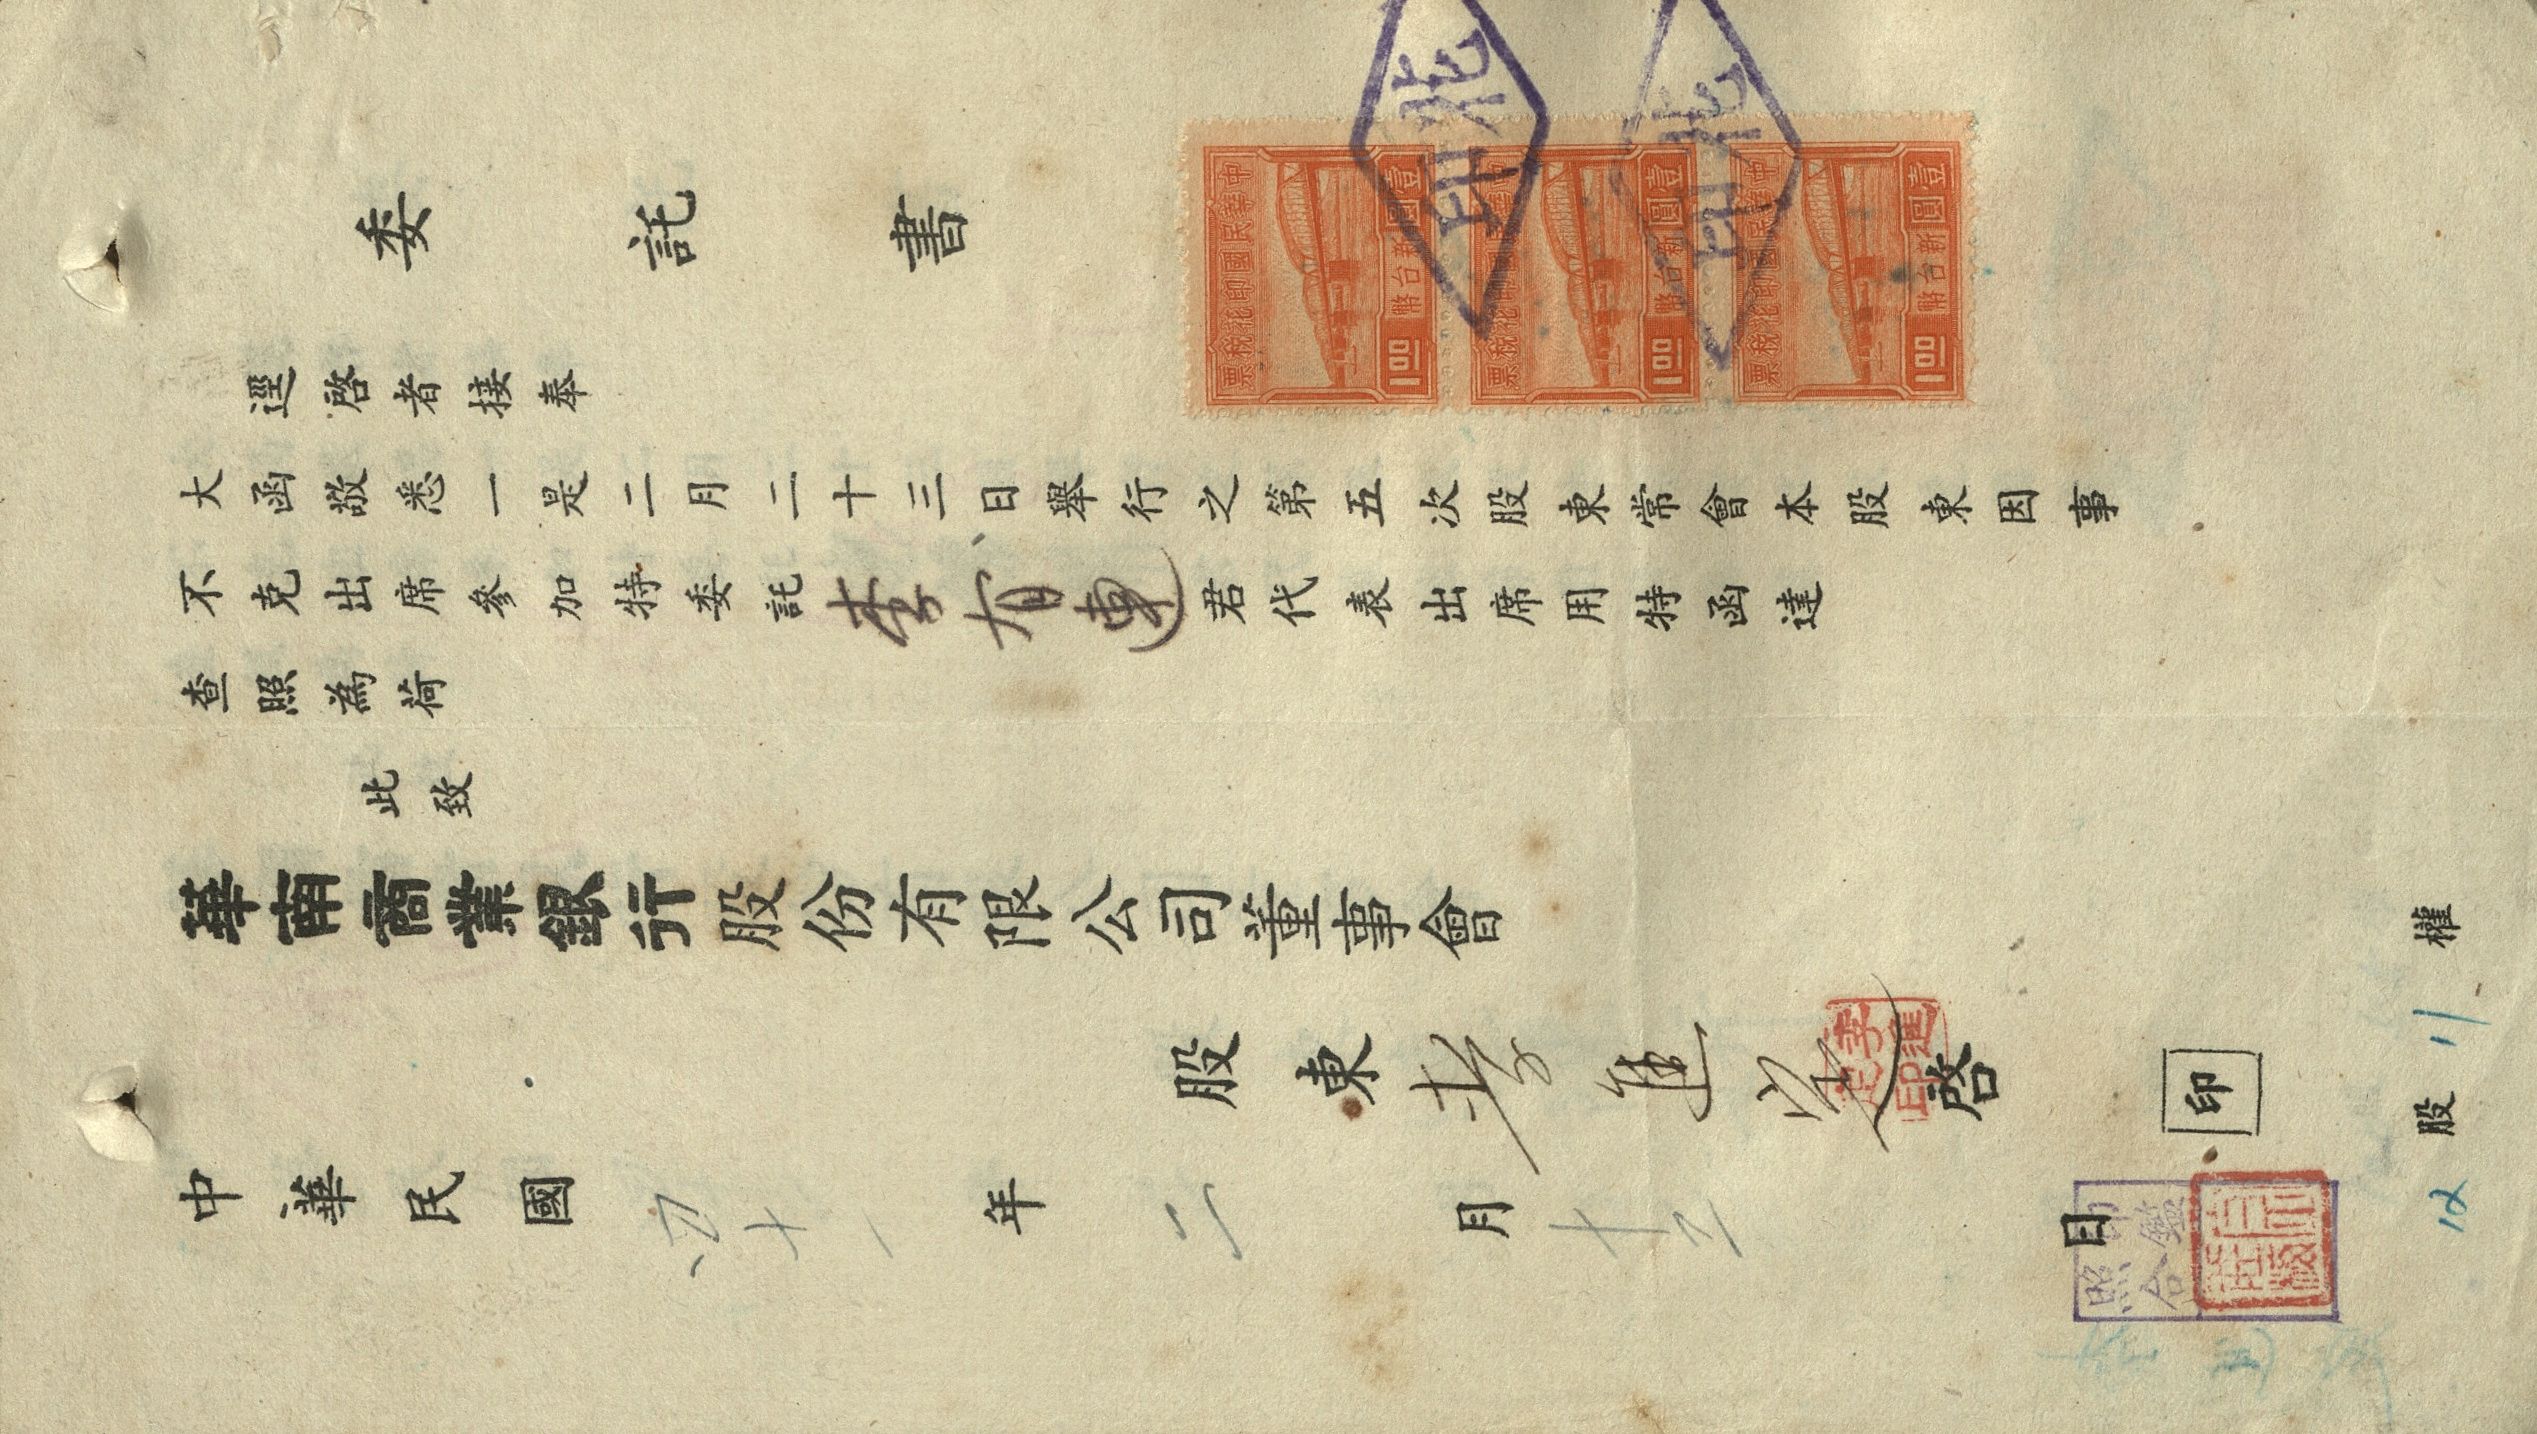 委託書
中華民國印花稅票
壹圓
新台幣
1.00
中華民國印花稅票
壹圓
新台幣
1.00
中華民國印花稅票
壹圓
新台幣
1.00
逕啓者接奉
大函敬悉一是二月二十三日舉行之第五次股東常會本股東因事
不克出席參加特委託李有連君代表出席用特函達
查照為荷
此致
華南商業銀行股份有限公司董事會
股東李進 啓
印
中華民國四十一年二月十三日
印鑑
照合
12股11權